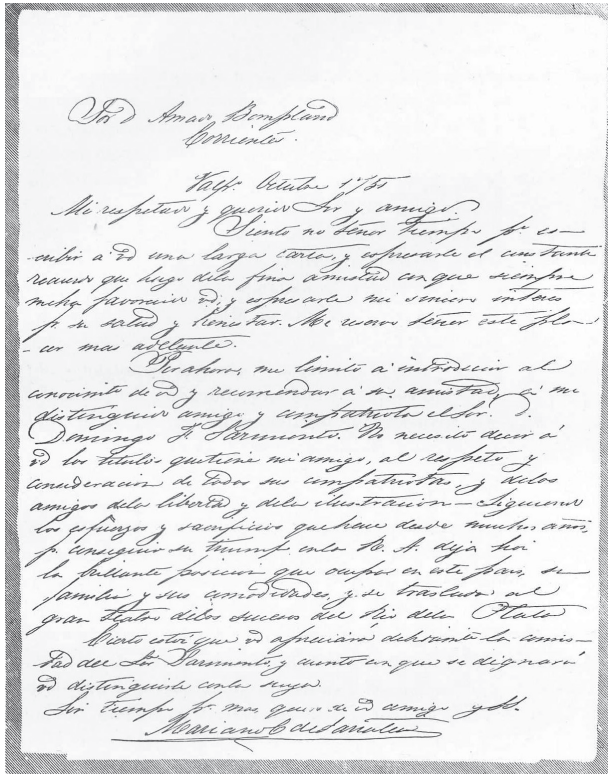 Sor D Amado Bompland
Corrientes.
Valpo. Octubre 1º/51
Mi respetado y querido Sor y amigo
Siento no tener tiempo pa. es-
-cribir á vd una larga carta, y espresarle el constante
recuerdo que hago dela fina amistad con que siempre
me ha favorecido vd, y espresarle mi sincero interes
pr. su salud y bienestar. Me reservo tener este pla-
-cer mas adelante.
Por ahora, me limito á introducir al
conocimto de vd y recomendar á su amistad, á mi
distinguido amigo y compatriota el Sor. D.
Domingo F. Sarmiento. No necesito decir á
vd los titulos que tiene mi amigo, al respeto y
consideracion de todos sus compatriotas, y delos
amigos dela libertad y dela ilustracion – Siguiendo
los esfuerzos y sacrificios que hace desde muchos años,
pr. conseguir su triunfo enla R. A. deja hoi
la brillante posicion que ocupa en este pais, su
familia y sus comodidades, y se traslada al
gran teatro delos sucesos del Rio dela Plata
Cierto estoi que vd apreciará debidamte la amis-
tad del Sor Sarmiento, y cuento con que se dignará
vd distinguirle conla suya.
Sin tiempo pa. mas, quedo de vd amigo y SS.
Mariano E de Sarratea